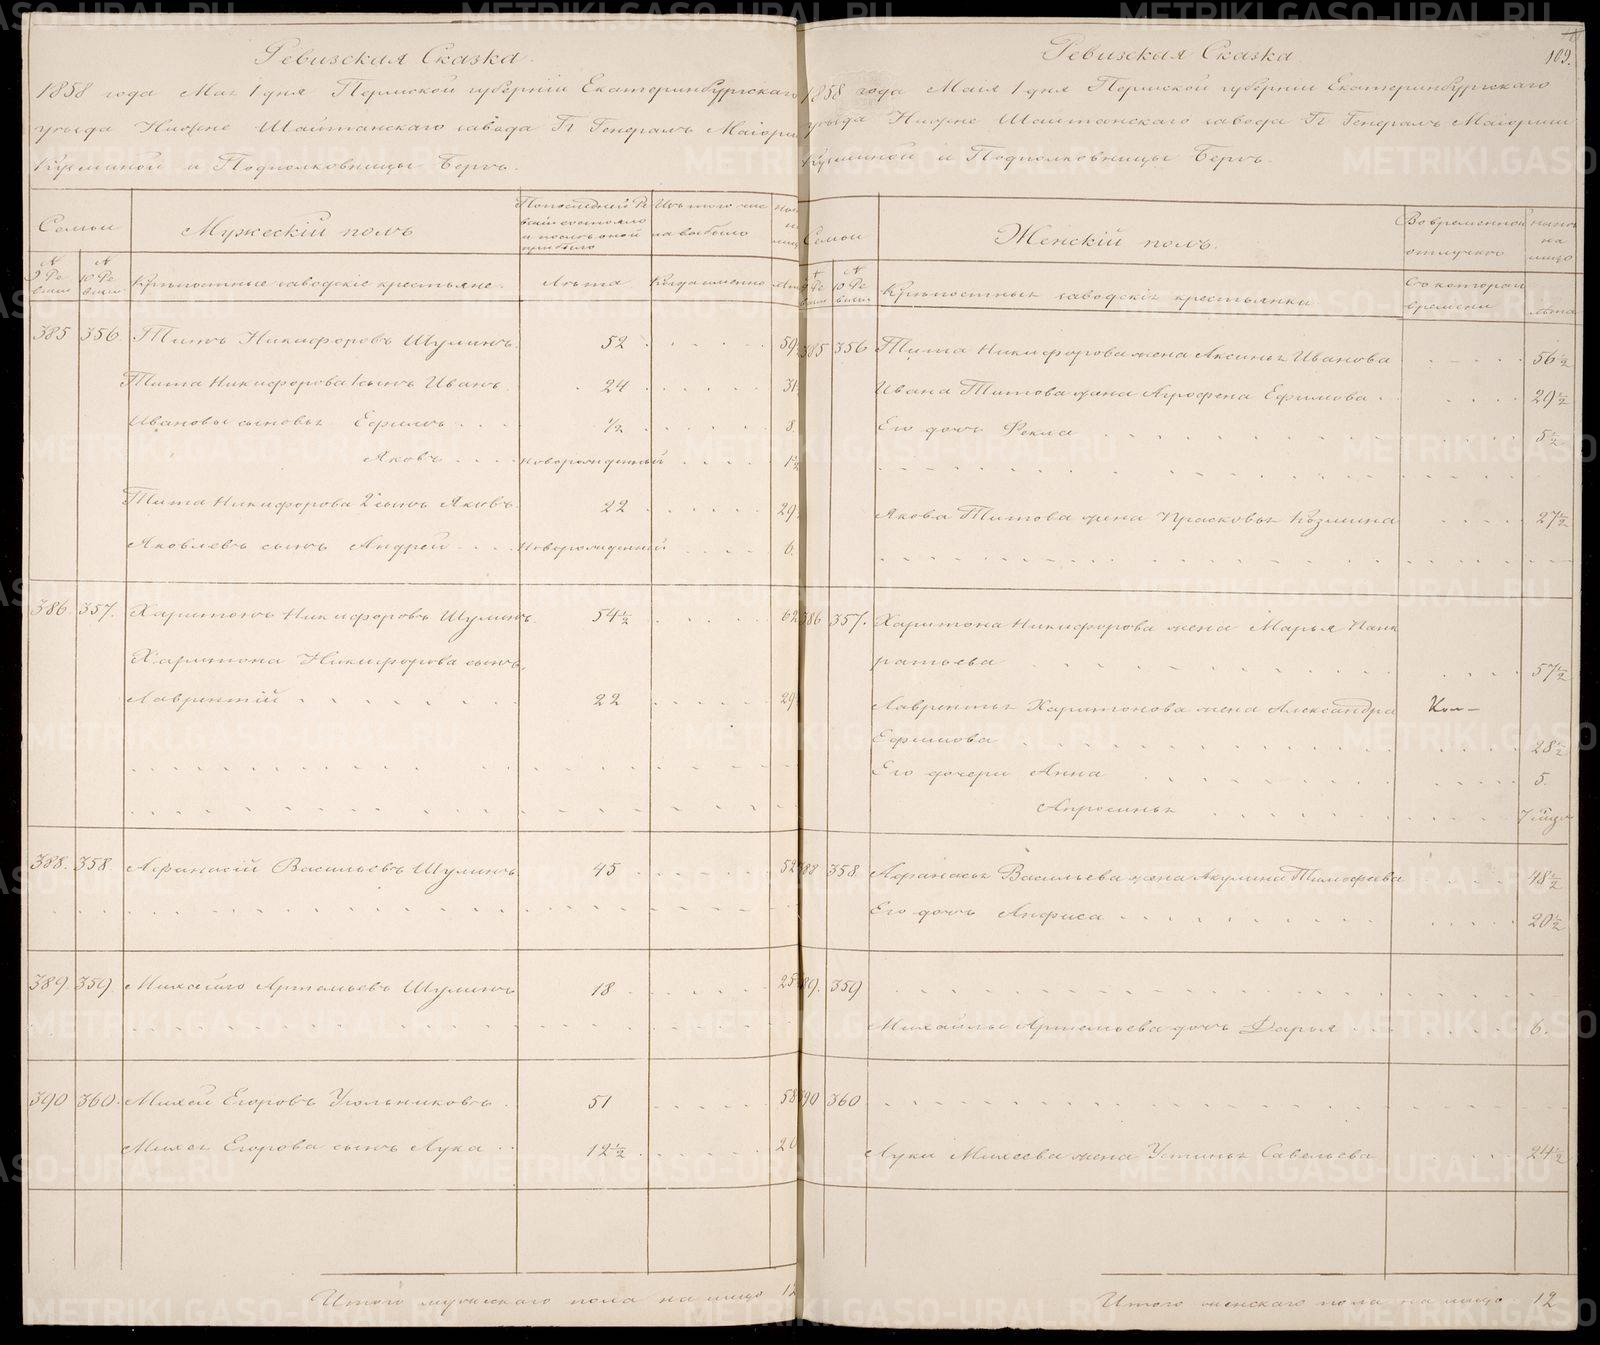 Ревизская Сказка.
1858 года Маія 1 дня Пермской губерніи Екатеринбургскаго
уѣзда Нижне Шайтанскаго завода Гг Генералъ Маіорши
Кузминой и Подполковницы Бергъ.
Семьи
Мужескій полъ
№ 9 Ревизіи
№ 10 Ревизіи
Крѣпостные заводскіе крестьяне.
Лѣта
Когда именно
385 356. Титъ Никифоровъ Шулинъ. 52 59.
Тита Никифорова 1 сынъ Иванъ. 24 31.
Ивановы сыновья Ефимъ 1/2 8.
Яковъ новорожденный 1 1/2
Тита Никифорова 2й сынъ Яковъ. 22 29.
Яковлевъ сынъ Андрей Новорожденный 6.
386. 357. Харитонъ Никифоровъ Шулинъ. 54 1/2 62
Харитона Никифорова сынъ,
Лаврентій 22 29
388. 358. Афанасій Васильевъ Шулинъ 45 52
389. 359. Михайло Артемьевъ Шулинъ 18 25
390 360. Михей Егоровъ Угольниковъ 51 58
Михея Егорова сынъ Лука 12 1/2 20
Итого мужескаго пола на лицо 12
109.
Ревизская Сказка
1858 года Маія 1 дня Пермской губерніи Екатеринбургскаго
уѣзда Нижне Шайтанскаго завода Гг Генералъ Маіорши
Кузминой и Подполковницы Бергъ.
Семьи
Женскій полъ.
Во временной отлучкѣ
на лицо
№ 9 Ревизіи
№ 10 Ревизіи
Крѣпостныя заводскія крестьянки
Съ котораго времени
лѣта
385 356 Тита Никифорова жена Аксинья Иванова 56 1/2
Ивана Титова жена Агрофена Ефимова 29 1/2
Его дочь Фекла 5 1/2
Якова Титова жена Прасковья Козмина 27 1/2
386 357. Харитона Никифорова жена Марья Панк
ратьева 57 1/2
Лаврентья Харитонова жена Александра
Ефимова 28 1/2
Его дочери Анна 5.
Апросинья
388 358 Афанасья Васильева жена Акулина Тимофѣева 48 1/2
Его дочь Анфиса 20 1/2
389. 359
Михайлы Артемьева дочь Дарья 6.
390 360
Луки Михеева жена Устинья Савельева 24 1/2
Итого женскаго пола на лицо 12
METRIKI.GASO-URAL.RU